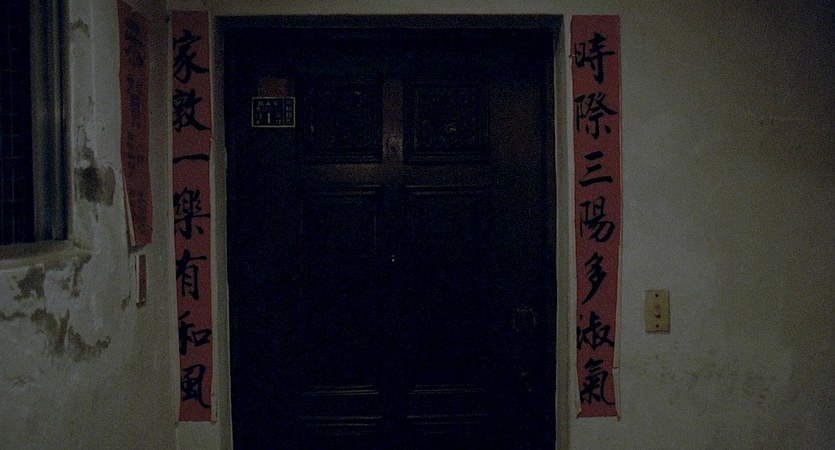 時際三陽多淑氣
家敦一樂有和風
1